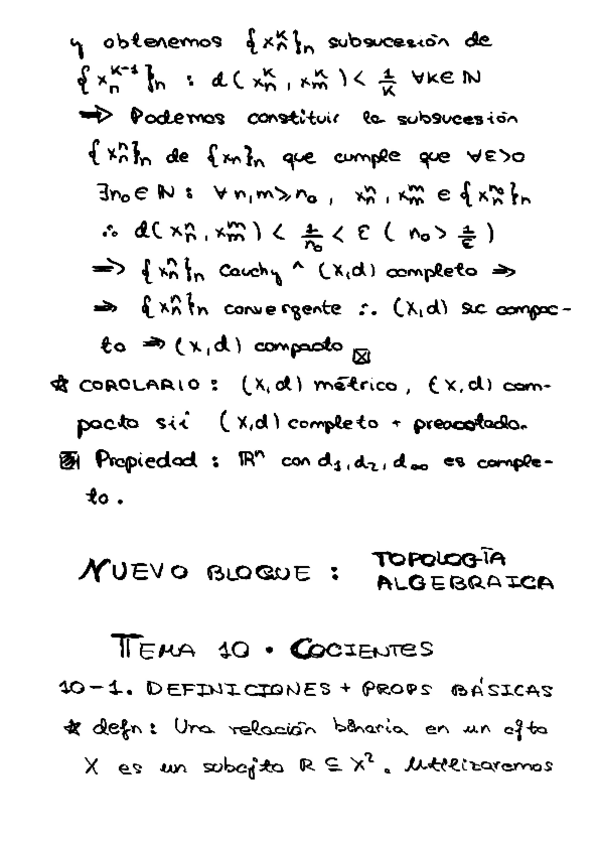 y obtenemos {xₙᴷ}ₙ subsucesión de
{xₙᴷ⁻¹}ₙ : d(xₙᴷ, xₘᴷ) < 1/K ∀K∈ℕ
⇒ Podemos constituir la subsucesión
{xₙⁿ}ₙ de {xₙ}ₙ que cumple que ∀ε>0
∃n₀∈ℕ : ∀n,m⩾n₀, xₙⁿ, xₘᵐ ∈ {xₙⁿ⁰}ₙ
∴ d(xₙⁿ, xₘᵐ) < 1/n₀ < ε (n₀ > 1/ε)
⇒ {xₙⁿ}ₙ Cauchy ^ (X,d) completo ⇒
⇒ {xₙⁿ}ₙ convergente ∴ (X,d) suc compac-
to ⇒ (X,d) compacto ☒
☆ COROLARIO : (X,d) métrico, (X,d) com-
pacto sii (X,d) completo + preacotado.
Propiedad : ℝⁿ con d₁, d₂, d∞ es comple-
to.
NUEVO BLOQUE : TOPOLOGÍA
ALGEBRAICA
TEMA 10 • COCIENTES
10-1. DEFINICIONES + PROPS BÁSICAS
☆ defn : Una relación binaria en un cjto
X es un subcjto R ⊆ X². Utilizaremos